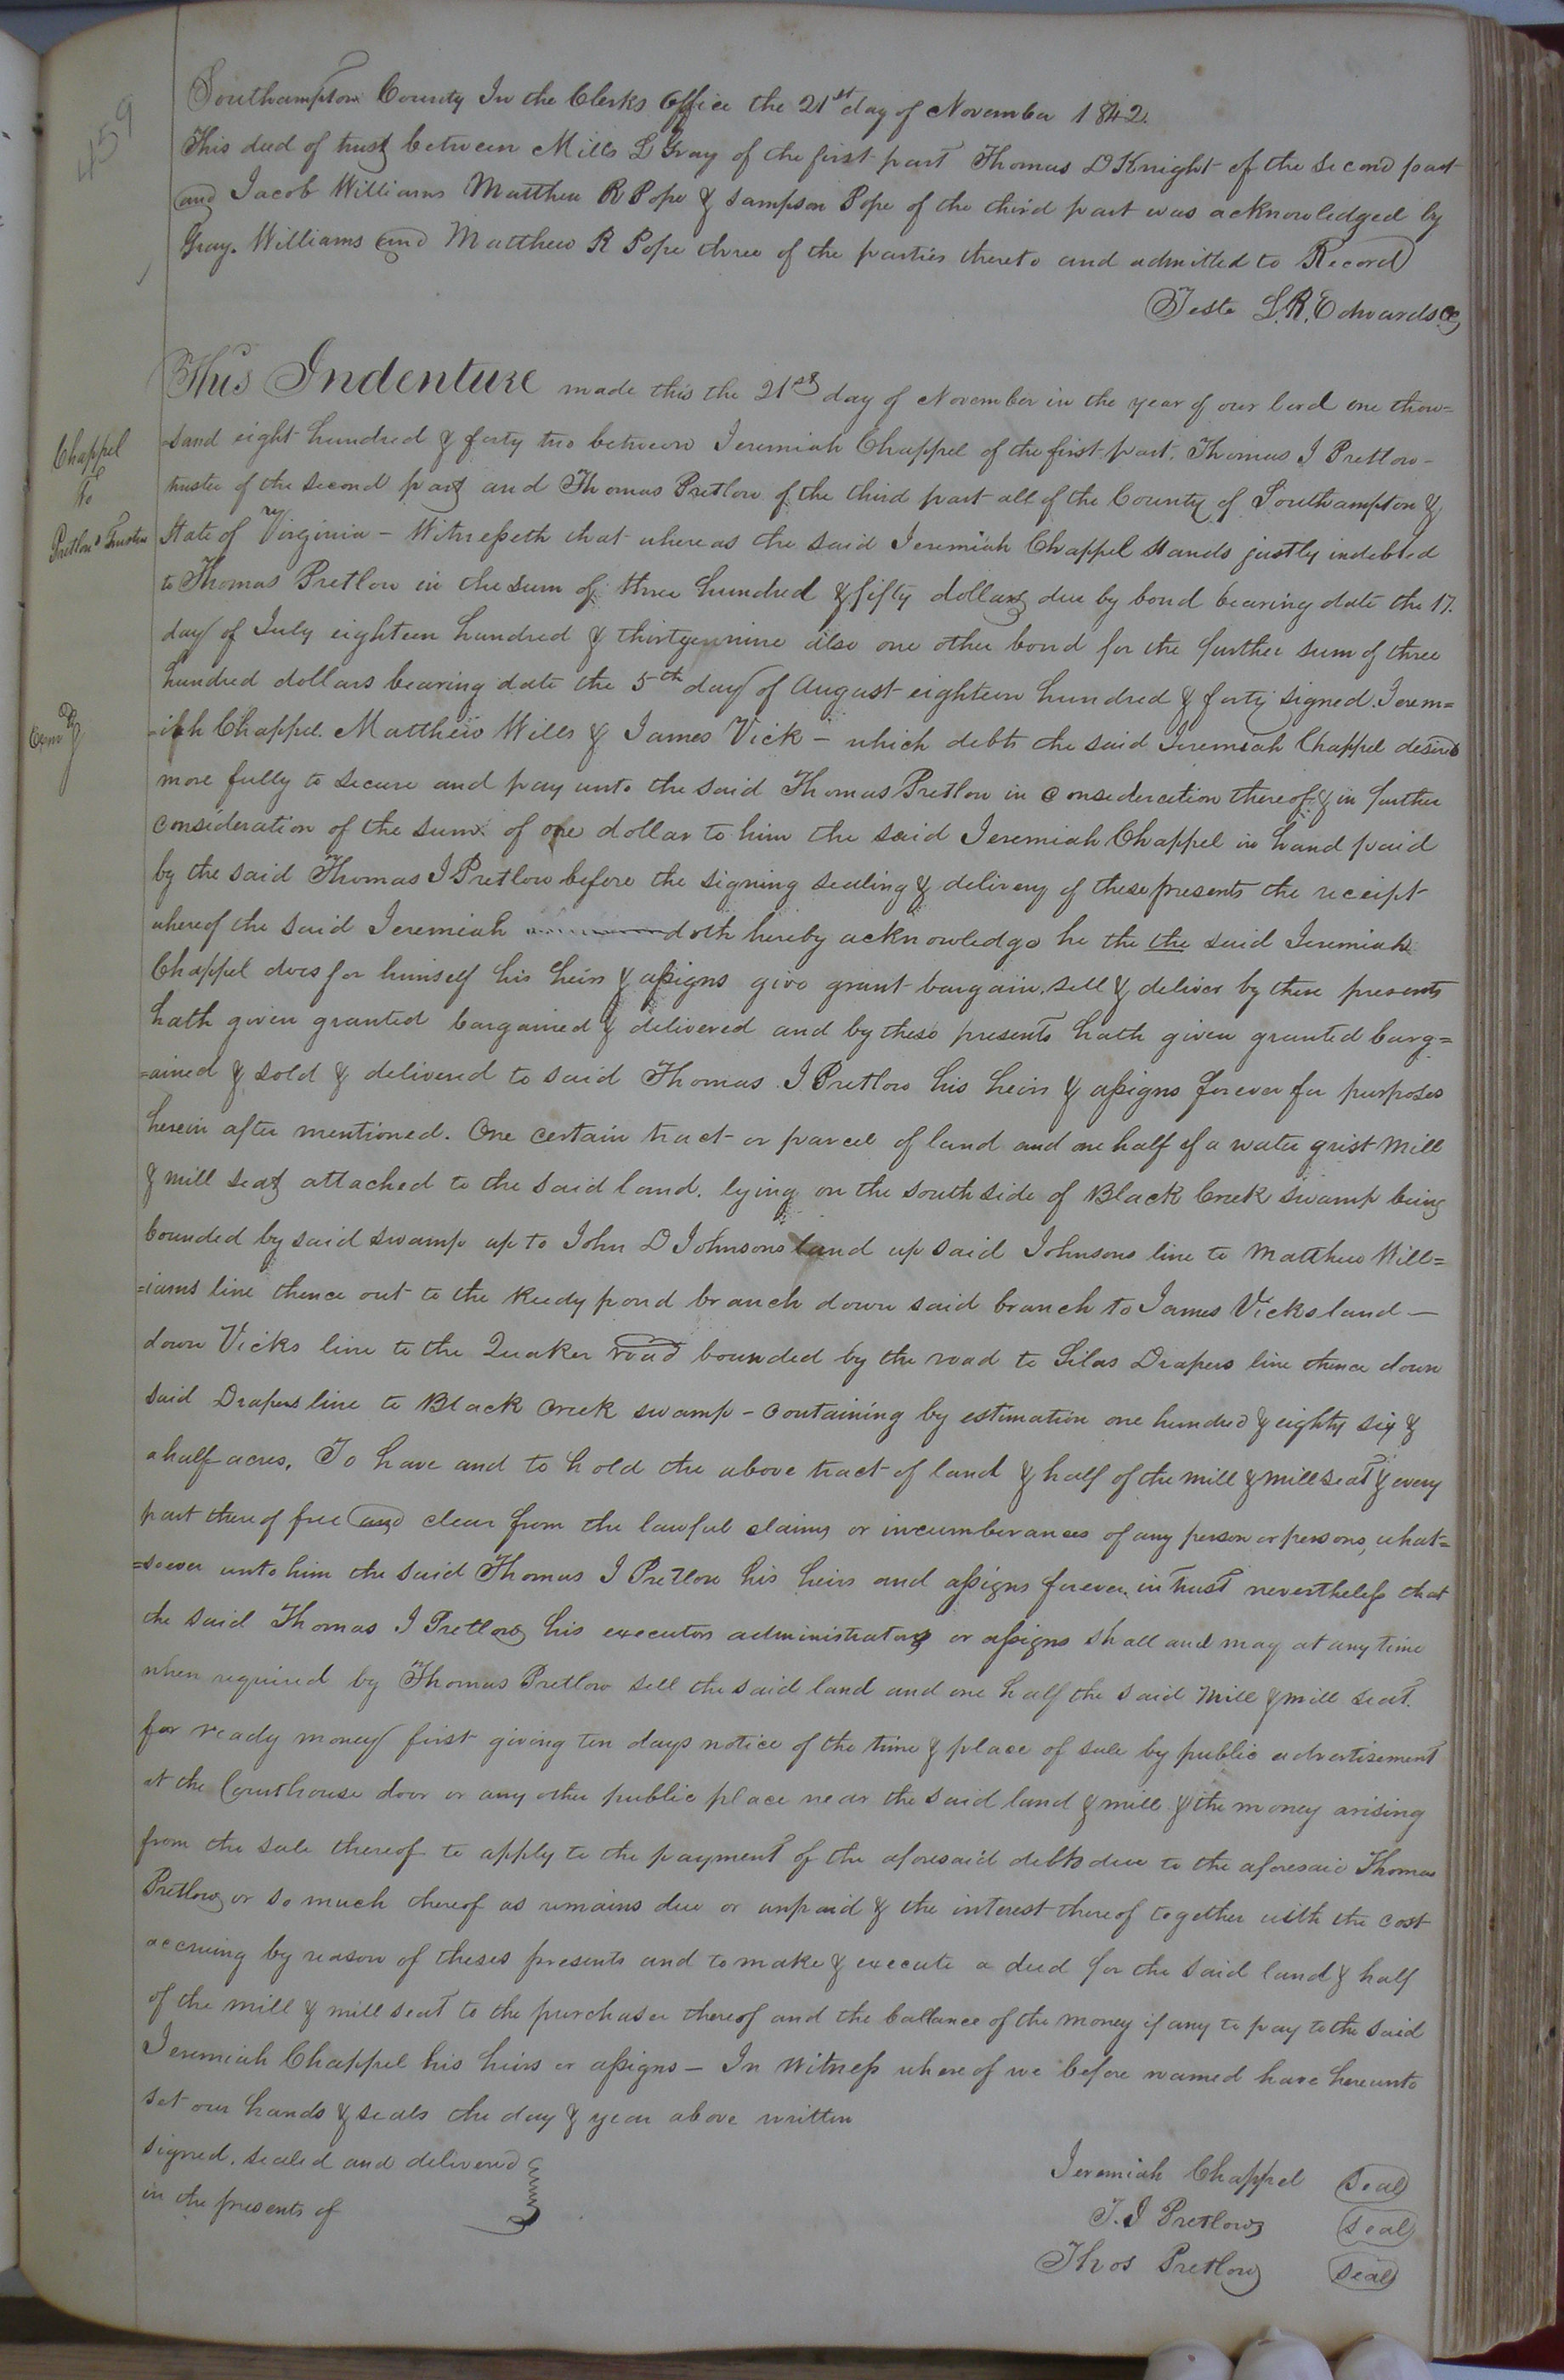 459
Southampton County In the Clerks Office the 21st day of November 1842.
This deed of trust between Mills L Gray of the first part Thomas D Knight of the second part
and Jacob Williams Matthew R Pope & Sampson Pope of the third part was acknowledged by
Gray. Williams and Matthew R Pope three of the parties thereto and admitted to Record
Teste L.R. Edwards C
Chappel
To
Pretlow's Trustee
This Indenture made this the 21st day of November in the year of our lord one thou=
=sand eight hundred & forty two between Jeremiah Chappel of the first part, Thomas J Pretlow-
trustee of the second part and Thomas Pretlow of the third part all of the County of Southampton &
State of Virginia - Witnesseth that whereas the said Jeremiah Chappel stands justly indebted
to Thomas Pretlow in the sum of three hundred & fifty dollars due by bond bearing date the 17.
day of July eighteen hundred & thirty nine also one other bond for the further sum of three
hundred dollars bearing date the 5th day of August eighteen hundred & forty signed. Jerem=
-iah Chappel Matthew Wills & James Vick - which debts the said Jeremiah Chappel desires
more fully to secure and pay unto the said Thomas Pretlow in consideration thereof & in further
consideration of the sum of one dollar to him the said Jeremiah Chappel in hand paid
by the said Thomas J Pretlow before the signing sealing & delivery of these presents the receipt
whereof the said Jeremiah doth hereby acknowledge he the the said Jeremiah
Chappel does for himself his heirs & assigns give grant bargain. sell & deliver by these presents
hath given granted bargained & delivered and by these presents hath given granted barg=
=ained & sold & delivered to said Thomas J Pretlow his heirs & assigns forever for purposes
herein after mentioned. One certain tract or parcel of land and one half of a water grist mill
& mill seat attached to the said land. lying on the south side of Black Creek swamp being
bounded by said swamp up to John D Johnsons land up said Johnsons line to Matthew Will=
=iams line thence out to the Reedy pond branch down said branch to James Vicks land—
down Vicks line to the Quaker road bounded by the road to Silas Drapers line thence down
said Drapers line to Black Creek swamp - containing by estimation one hundred & eighty six &
a half acres. To have and to hold the above tract of land & half of the mill & mill seat & every
part there of free and clear from the lawful claims or incumberances of any person or persons, what=
=soever unto him the said Thomas J Pretlow his heirs and assigns forever. in trust nevertheless that
the said Thomas J Pretlow his executors administrators or assigns shall and may at any time
when required by Thomas Pretlow sell the said land and one half the said Mill & mill seat.
for ready money first giving ten days notice of the time & place of sale by public advertisement
at the Courthouse door or any other public place near the said land & mill & the money arising
from the sale thereof to apply to the payment of the aforesaid debts due to the aforesaid Thomas
Pretlow or so much thereof as remains due or unpaid & the interest thereof together with the cost
accruing by reason of theses presents and to make & execute a deed for the said land & half
of the mill & mill seat to the purchaser thereof and the ballance of the money if any to pay to the said
Jeremiah Chappel his heirs or assigns - In Witness where of we before named have hereunto
set our hands & seals the day & year above written
signed. sealed and delivered
in the presents of
Jeremiah Chappel seal
T. J Pretlow seal
Thos Pretlow seal